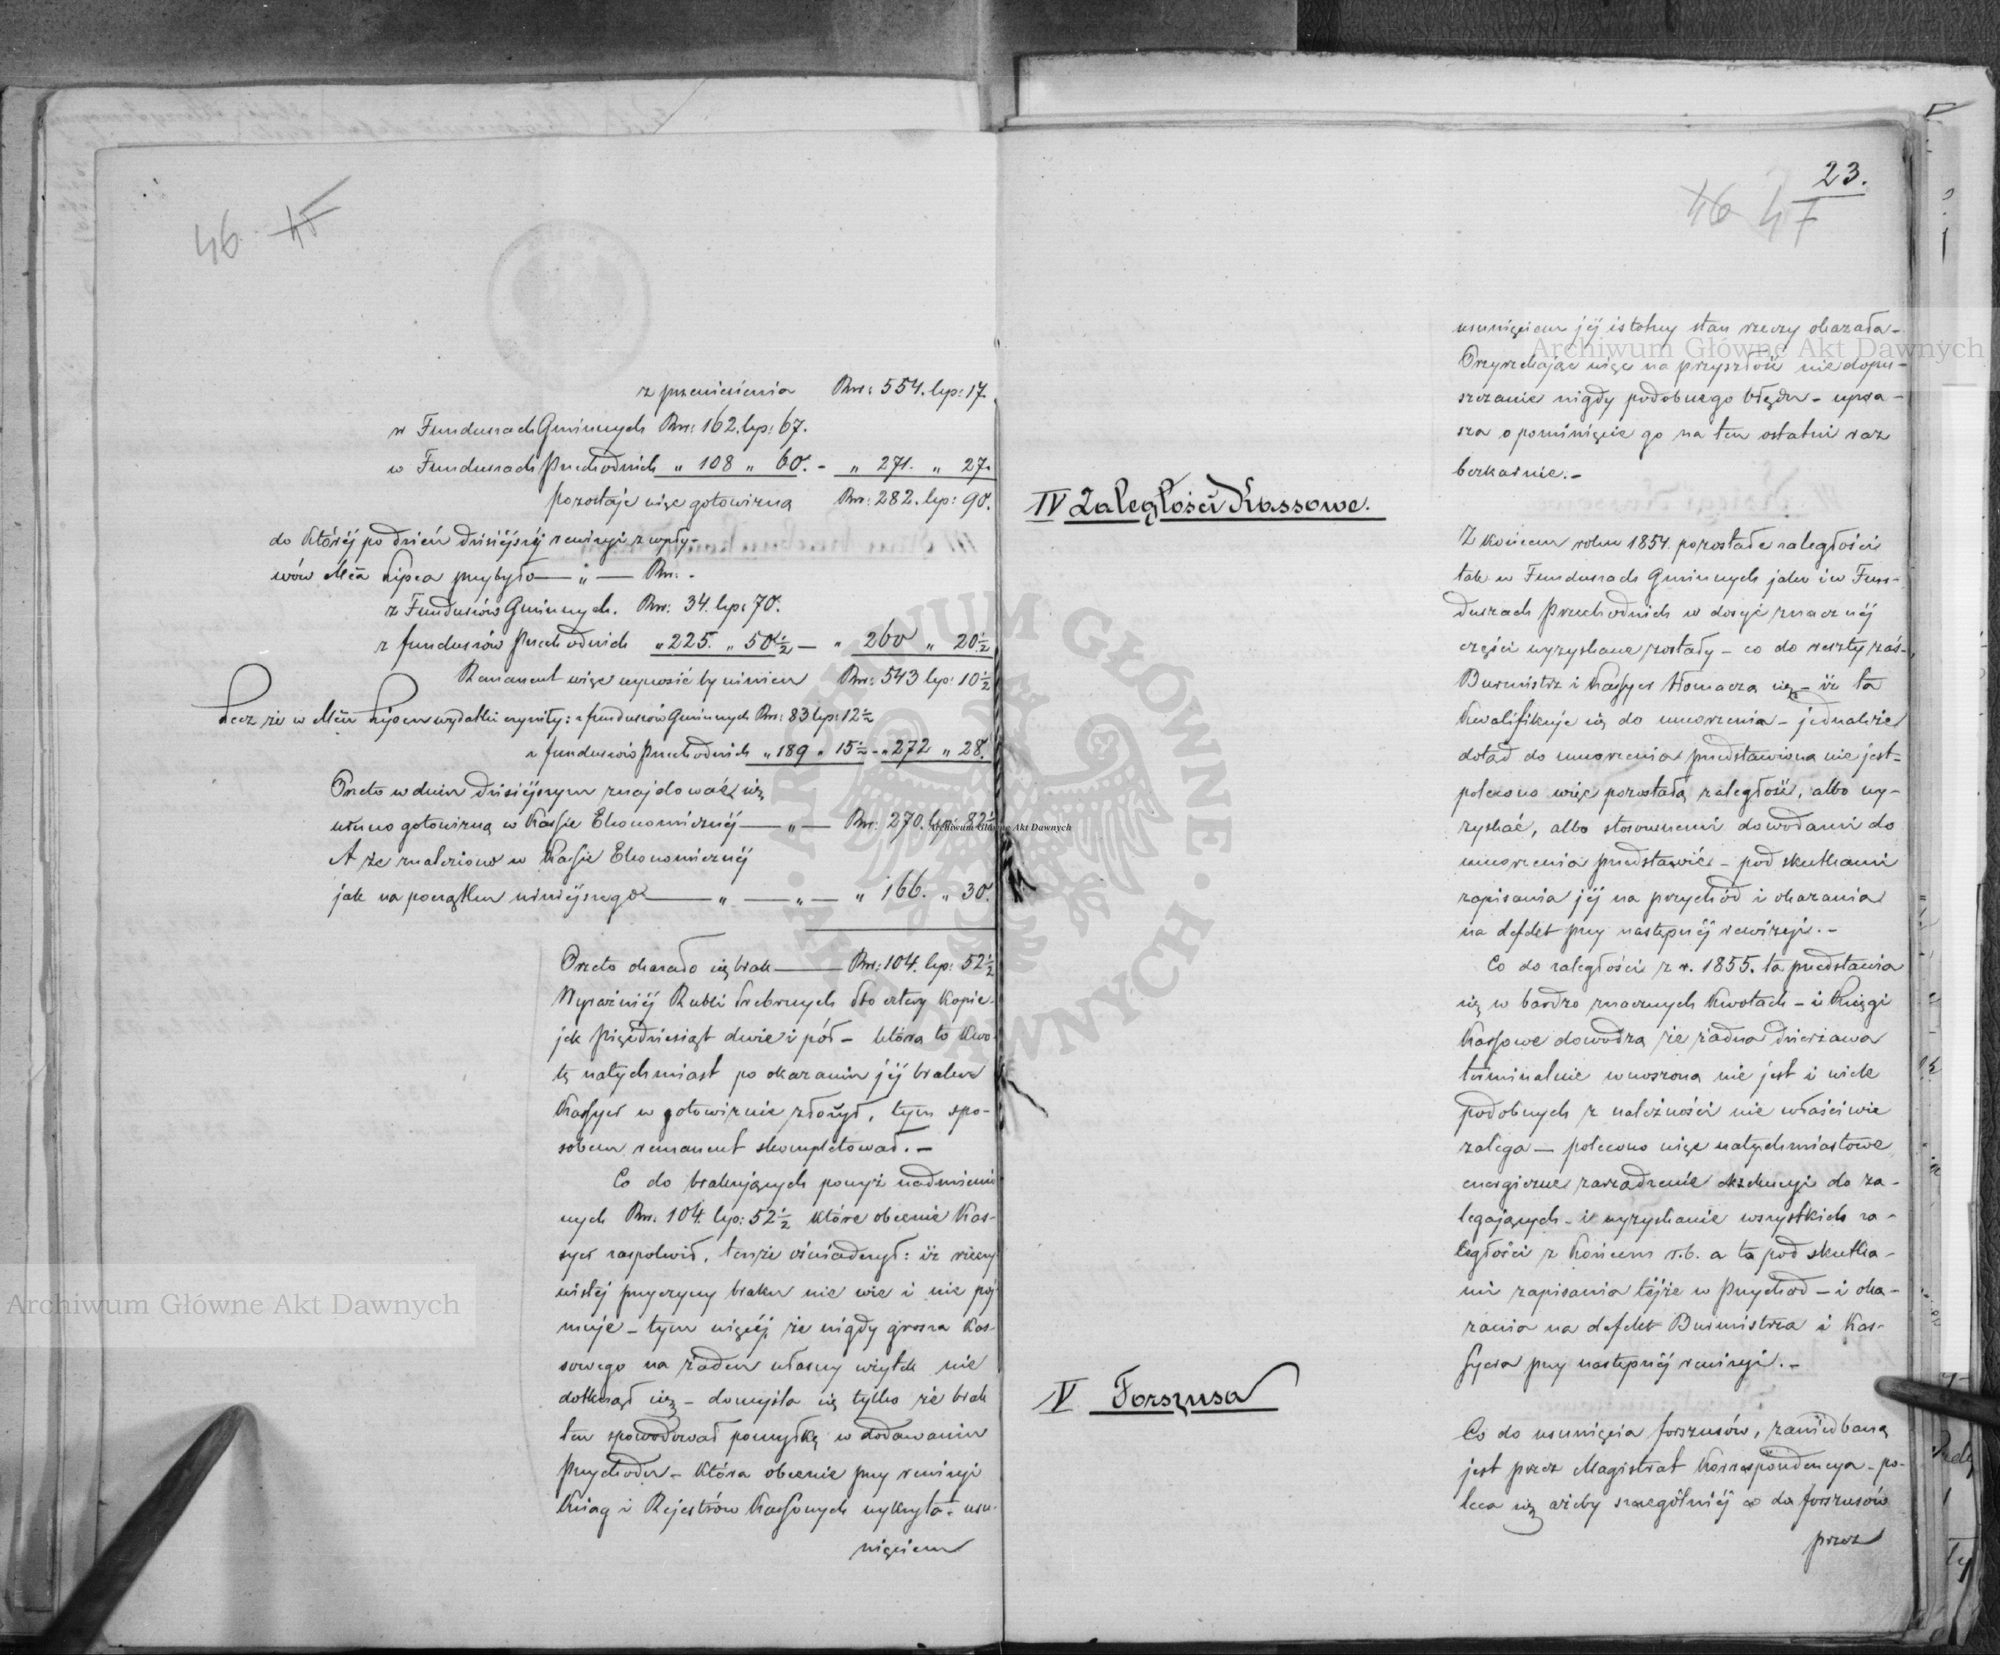 46 47
z przeniesienia Rsr: 554. kop: 17.
w Funduszach Gminnych Rsr: 162. kop: 67.
w Funduszach Przechodnich „ 108 „ 60. - „ 271. „ 27.
pozostaje więc gotowizną Rsr: 282. kop: 90.
do któréj po dzień dzisiéjszéj rewizyi z wpły-
wów Mca Lipca przybyło — „ — Rsr: -
z Funduszów Gminnych. Rsr: 34. kop: 70.
z funduszów Przechodnich „ 225. „ 50½ — „ 260 „ 20½
Remanent więc wynosić by winien Rsr: 543 kop: 10½
Lecz że w Mcu Lipcu wydatki czyniły: z funduszów Gminnych Rsr: 83 kop: 12½
z funduszów Przechodnich „ 189 „ 15½ - „ 272 „ 28.
Przeto w dniu dzisiéjszym znajdować się
winno gotowizną w Kassie Ekonomicznéj — „ — Rsr: 270. kop: 82½
A że znaleziono w Kassie Ekonomicznéj
jak na początku niniéjszego — „ — „ — „ 166. „ 30.
Przeto okazało się brak — Rsr: 104. kop: 52½
Wyraźniéj Rubli Srebrnych Sto cztery kopie-
jek pięćdziesiąt dwie i pół – która to kwo-
tę natychmiast po okazaniu jéj braku
Kassyer w gotowiznie złożył, tym spo-
sobem remanent skompletował. –
Co do brakujących powyż nadmienio
nych Rsr. 104. kop: 52½ które obecnie Kas-
syer zaspokoił, tenże oświadczył: iż rzeczy
wistéj przyczyny braku nie wie i nie poj
muje – tym więcéj że nigdy grosza Kas-
sowego na żaden własny użytek nie
dotknął się – domyśla się tylko że brak
ten spowodował pomyłkę w dodawaniu
Przychodu – która obecnie przy rewizyi
Ksiąg i Rejestrów Kassowych wykryta – usu-
nięciem
23.
46 47
usunięciem jéj istotny stan rzeczy okazała –
Przyrzekając więc na przyszłość niedopu-
szczanie nigdy podobnego błędu – upra-
sza o pominięcie go na ten ostatni raz
bezkarnie. –
IV Zaległości Kassowe.
Z końcem roku 1854. pozostałe zaległości
tak w Funduszach Gminnych jako i w Fun-
duszach Przechodnich w dosyć znacznéj
części wyzyskane zostały – co do reszty zaś –
Burmistrz i Kassyer tłomaczą się – iż ta
kwalifikuje się do umorzenia – jednakże
dotąd do umorzenia przedstawioną nie jest –
polecono więc pozostałą zaległość, albo wy-
zyskać, albo stosownemi dowodami do
umorzenia przedstawić – pod skutkami
zapisania jéj na przychód i okazania
na defekt przy następnéj rewizyi. –
Co do zaległości z r. 1855. ta przedstawia
się w bardzo znacznych kwotach – i Księgi
Kassowe dowodzą że żadna dzierżawa
terminalnie wnoszoną nie jest i wiele
podobnych z należności nie właściwie
zalega — polecono więc natychmiastowe
energiczne zarządzenie exekucyi do za-
legających – i wyzyskanie wszystkich za-
ległości z końcem r.b. a to pod skutka-
mi zapisania téjże w Przychód – i oka-
zania na defekt Burmistrza i Kas-
syera przy następnéj rewizyi. –
V Forszusa
Co do usunięcia forszusów, zaniedbaną
jest przez Magistrat korrespondencya – po-
leca się ażeby szczególniéj co do forszusów
przez
Archiwum Główne Akt Dawnych
Archiwum Główne Akt Dawnych
Archiwum Główne Akt Dawnych
ARCHIWUM GŁÓWNE AKT DAWNYCH